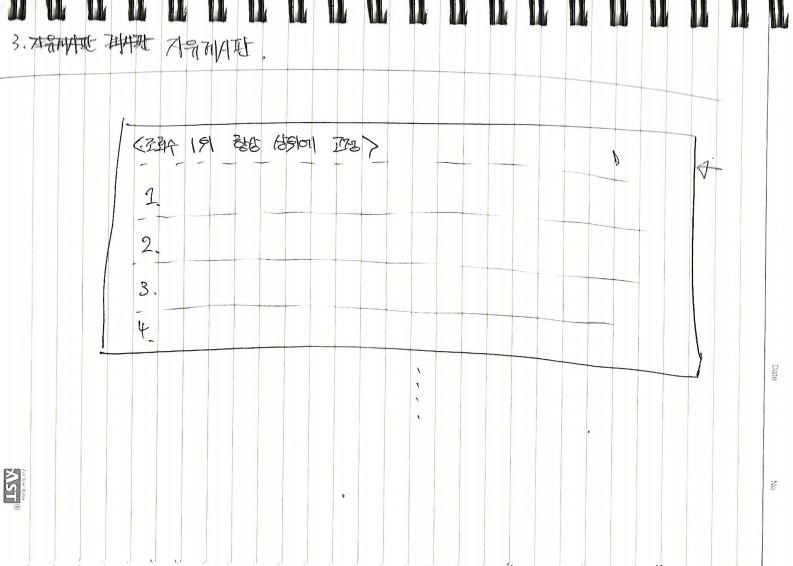 3. 자유게시판 게시판 자유게시판.
<조회수 1위 항상 상위에 고정>
1.
2.
3.
4.
Date
No
AST